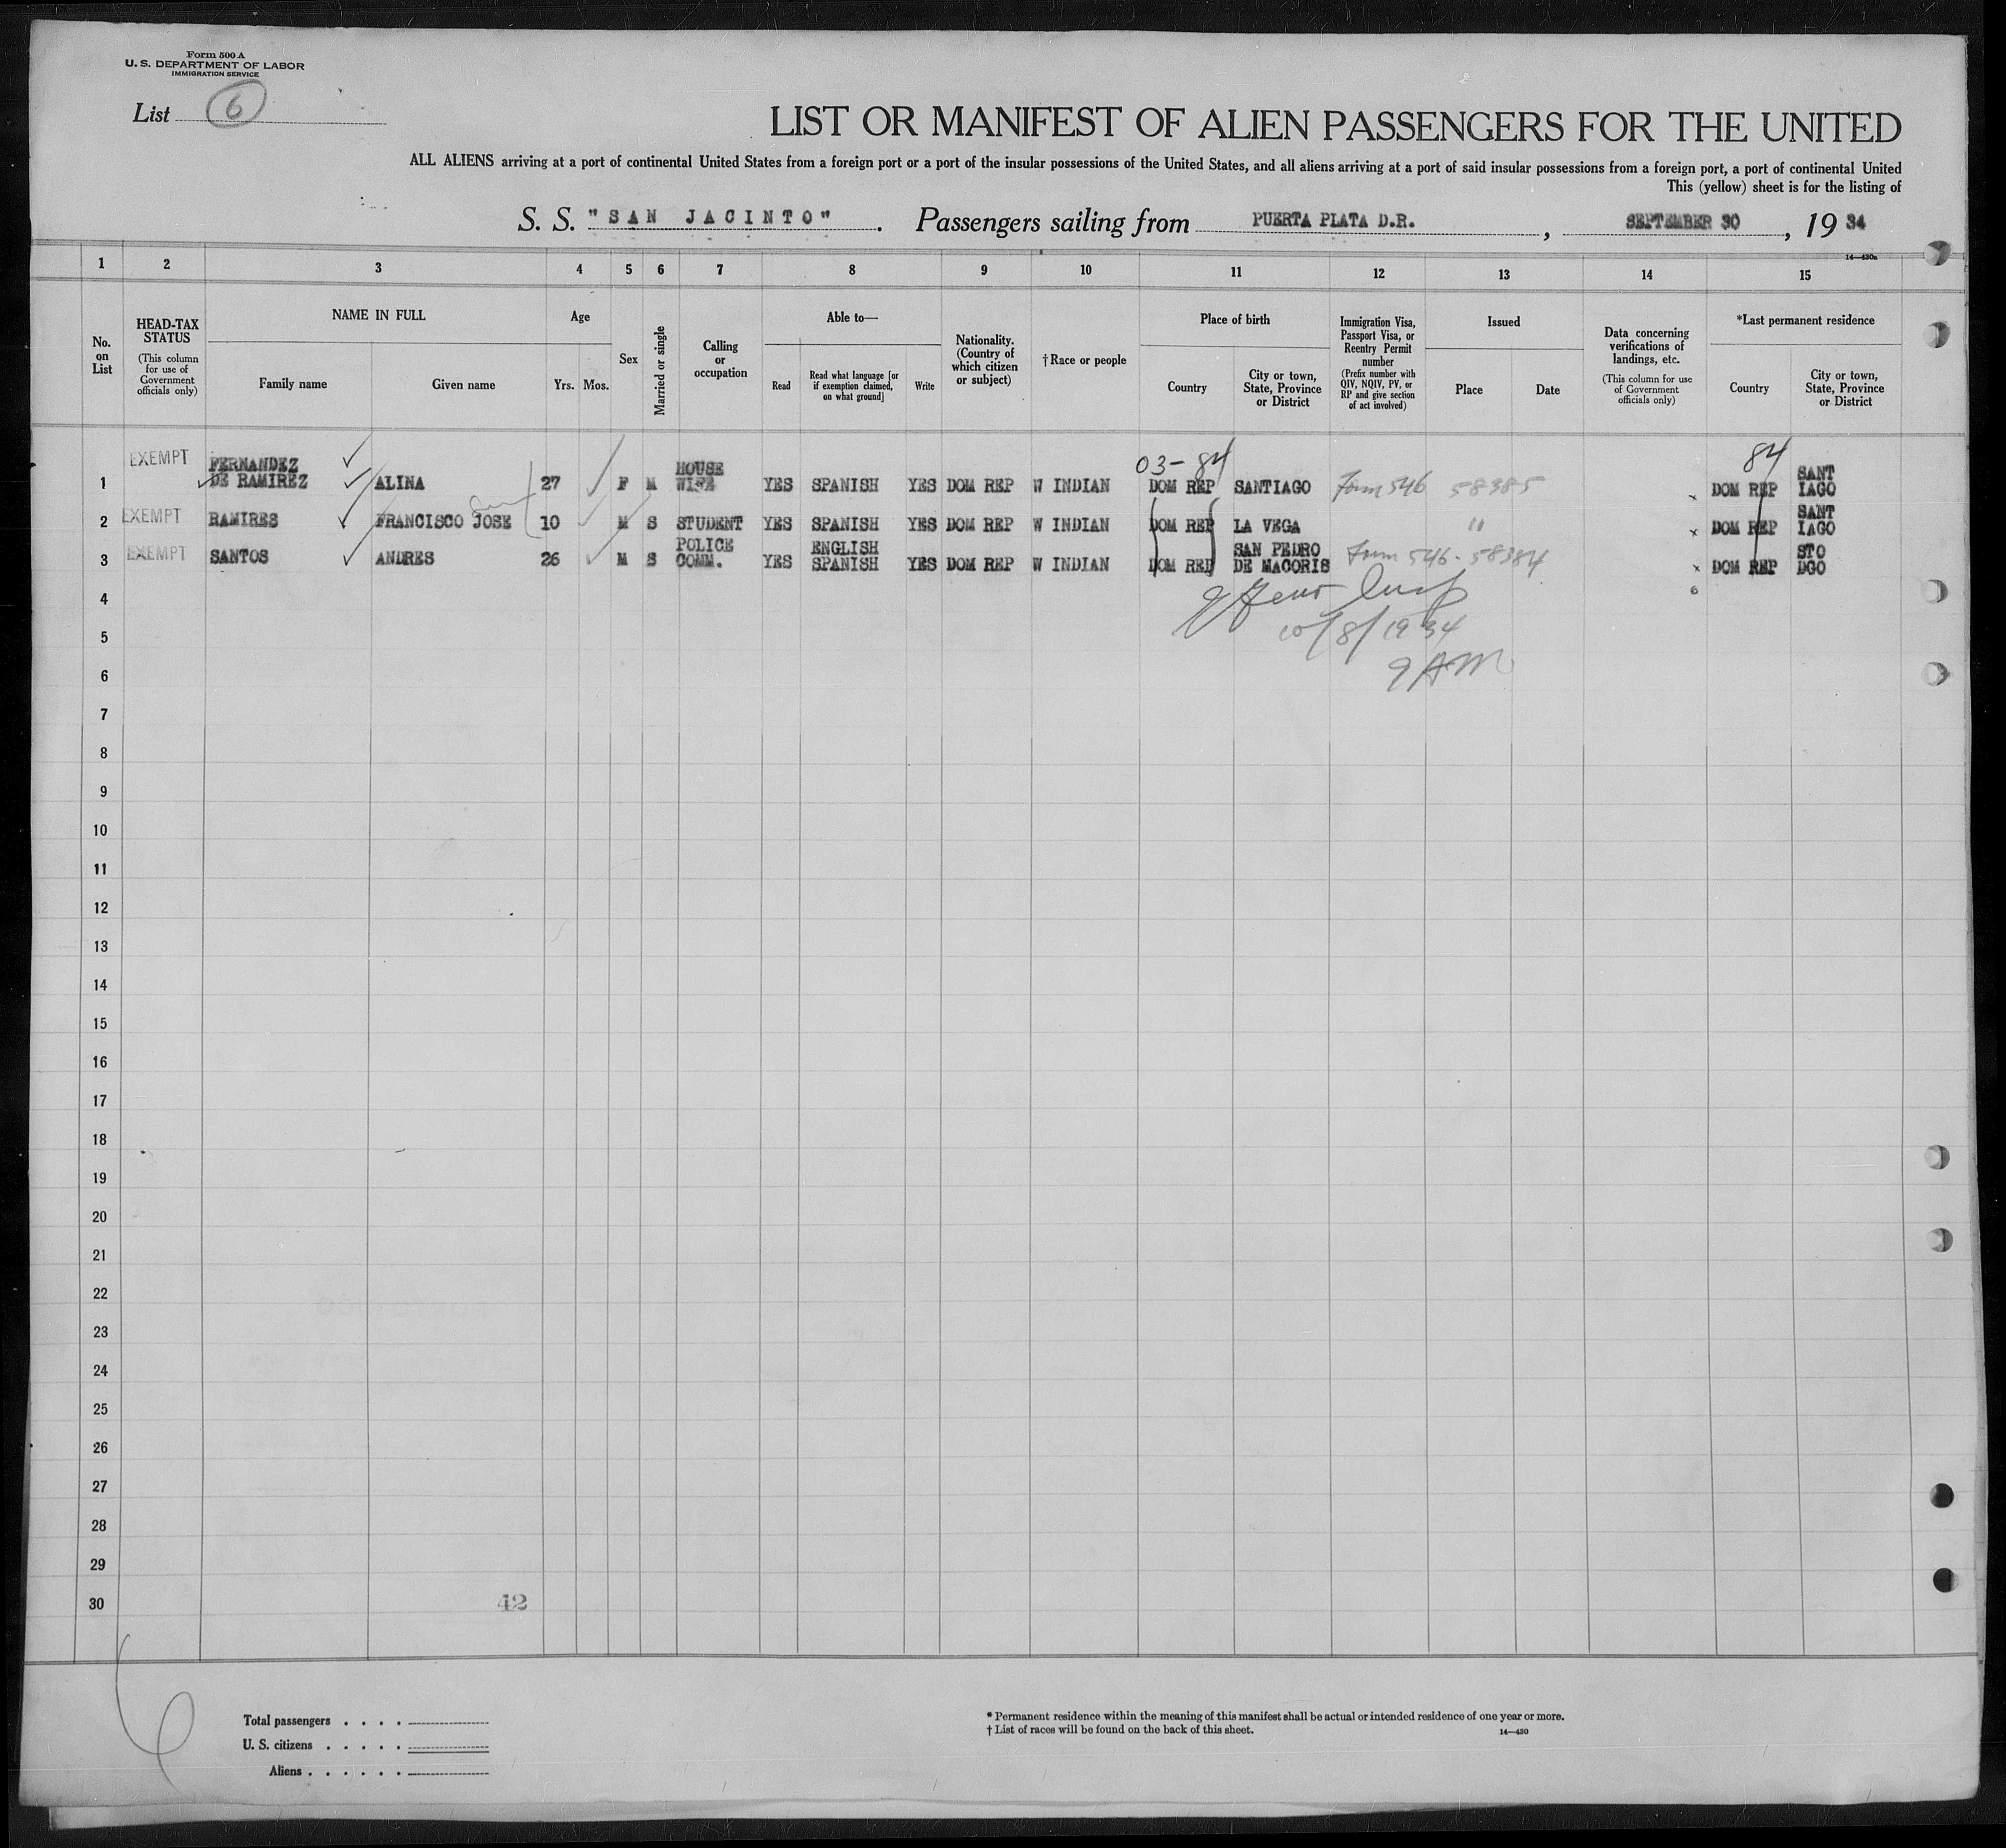 Form 500 A
U. S. DEPARTMENT OF LABOR
IMMIGRATION SERVICE
List 6
LIST OR MANIFEST OF ALIEN PASSENGERS FOR THE UNITED
ALL ALIENS arriving at a port of continental United States from a foreign port or a port of the insular possessions of the United States, and all aliens arriving at a port of said insular possessions from a foreign port, a port of continental United
This (yellow) sheet is for the listing of
S. S. "SAN JACINTO". Passengers sailing from PUERTA PLATA D.R., SEPTEMBER 30, 1934
14—430a
1 2 3 4 5 6 7 8 9 10 11 12 13 14 15
No. on List
HEAD-TAX STATUS (This column for use of Government officials only)
NAME IN FULL
Family name Given name
Age
Yrs. Mos.
Sex
Married or single
Calling or occupation
Able to—
Read
Read what language [or if exemption claimed, on what ground]
Write
Nationality. (Country of which citizen or subject)
† Race or people
Place of birth
Country
City or town, State, Province or District
Immigration Visa, Passport Visa, or Reentry Permit number (Prefix number with QIV, NQIV, PV, or RP and give section of act involved)
Issued
Place Date
Data concerning verifications of landings, etc. (This column for use of Government officials only)
*Last permanent residence
Country
City or town, State, Province or District
03-84 84
1 EXEMPT FERNANDEZ DE RAMIREZ ALINA 27 F M HOUSE WIFE YES SPANISH YES DOM REP W INDIAN DOM REP SANTIAGO Form 546 58385 x DOM REP SANT IAGO
2 EXEMPT RAMIRES FRANCISCO JOSE 10 M S STUDENT YES SPANISH YES DOM REP W INDIAN DOM REP LA VEGA " x DOM REP SANT IAGO
3 EXEMPT SANTOS ANDRES 26 M S POLICE COMM. YES ENGLISH SPANISH YES DOM REP W INDIAN DOM REP SAN PEDRO DE MACORIS Form 546-58384 x DOM REP STO DGO
4
10/8/1934
5
9 AM
6
7
8
9
10
11
12
13
14
15
16
17
18
19
20
21
22
23
24
25
26
27
28
29
30
42
Total passengers . . . .
U. S. citizens . . . . .
Aliens . . . . . .
* Permanent residence within the meaning of this manifest shall be actual or intended residence of one year or more.
† List of races will be found on the back of this sheet. 14—430